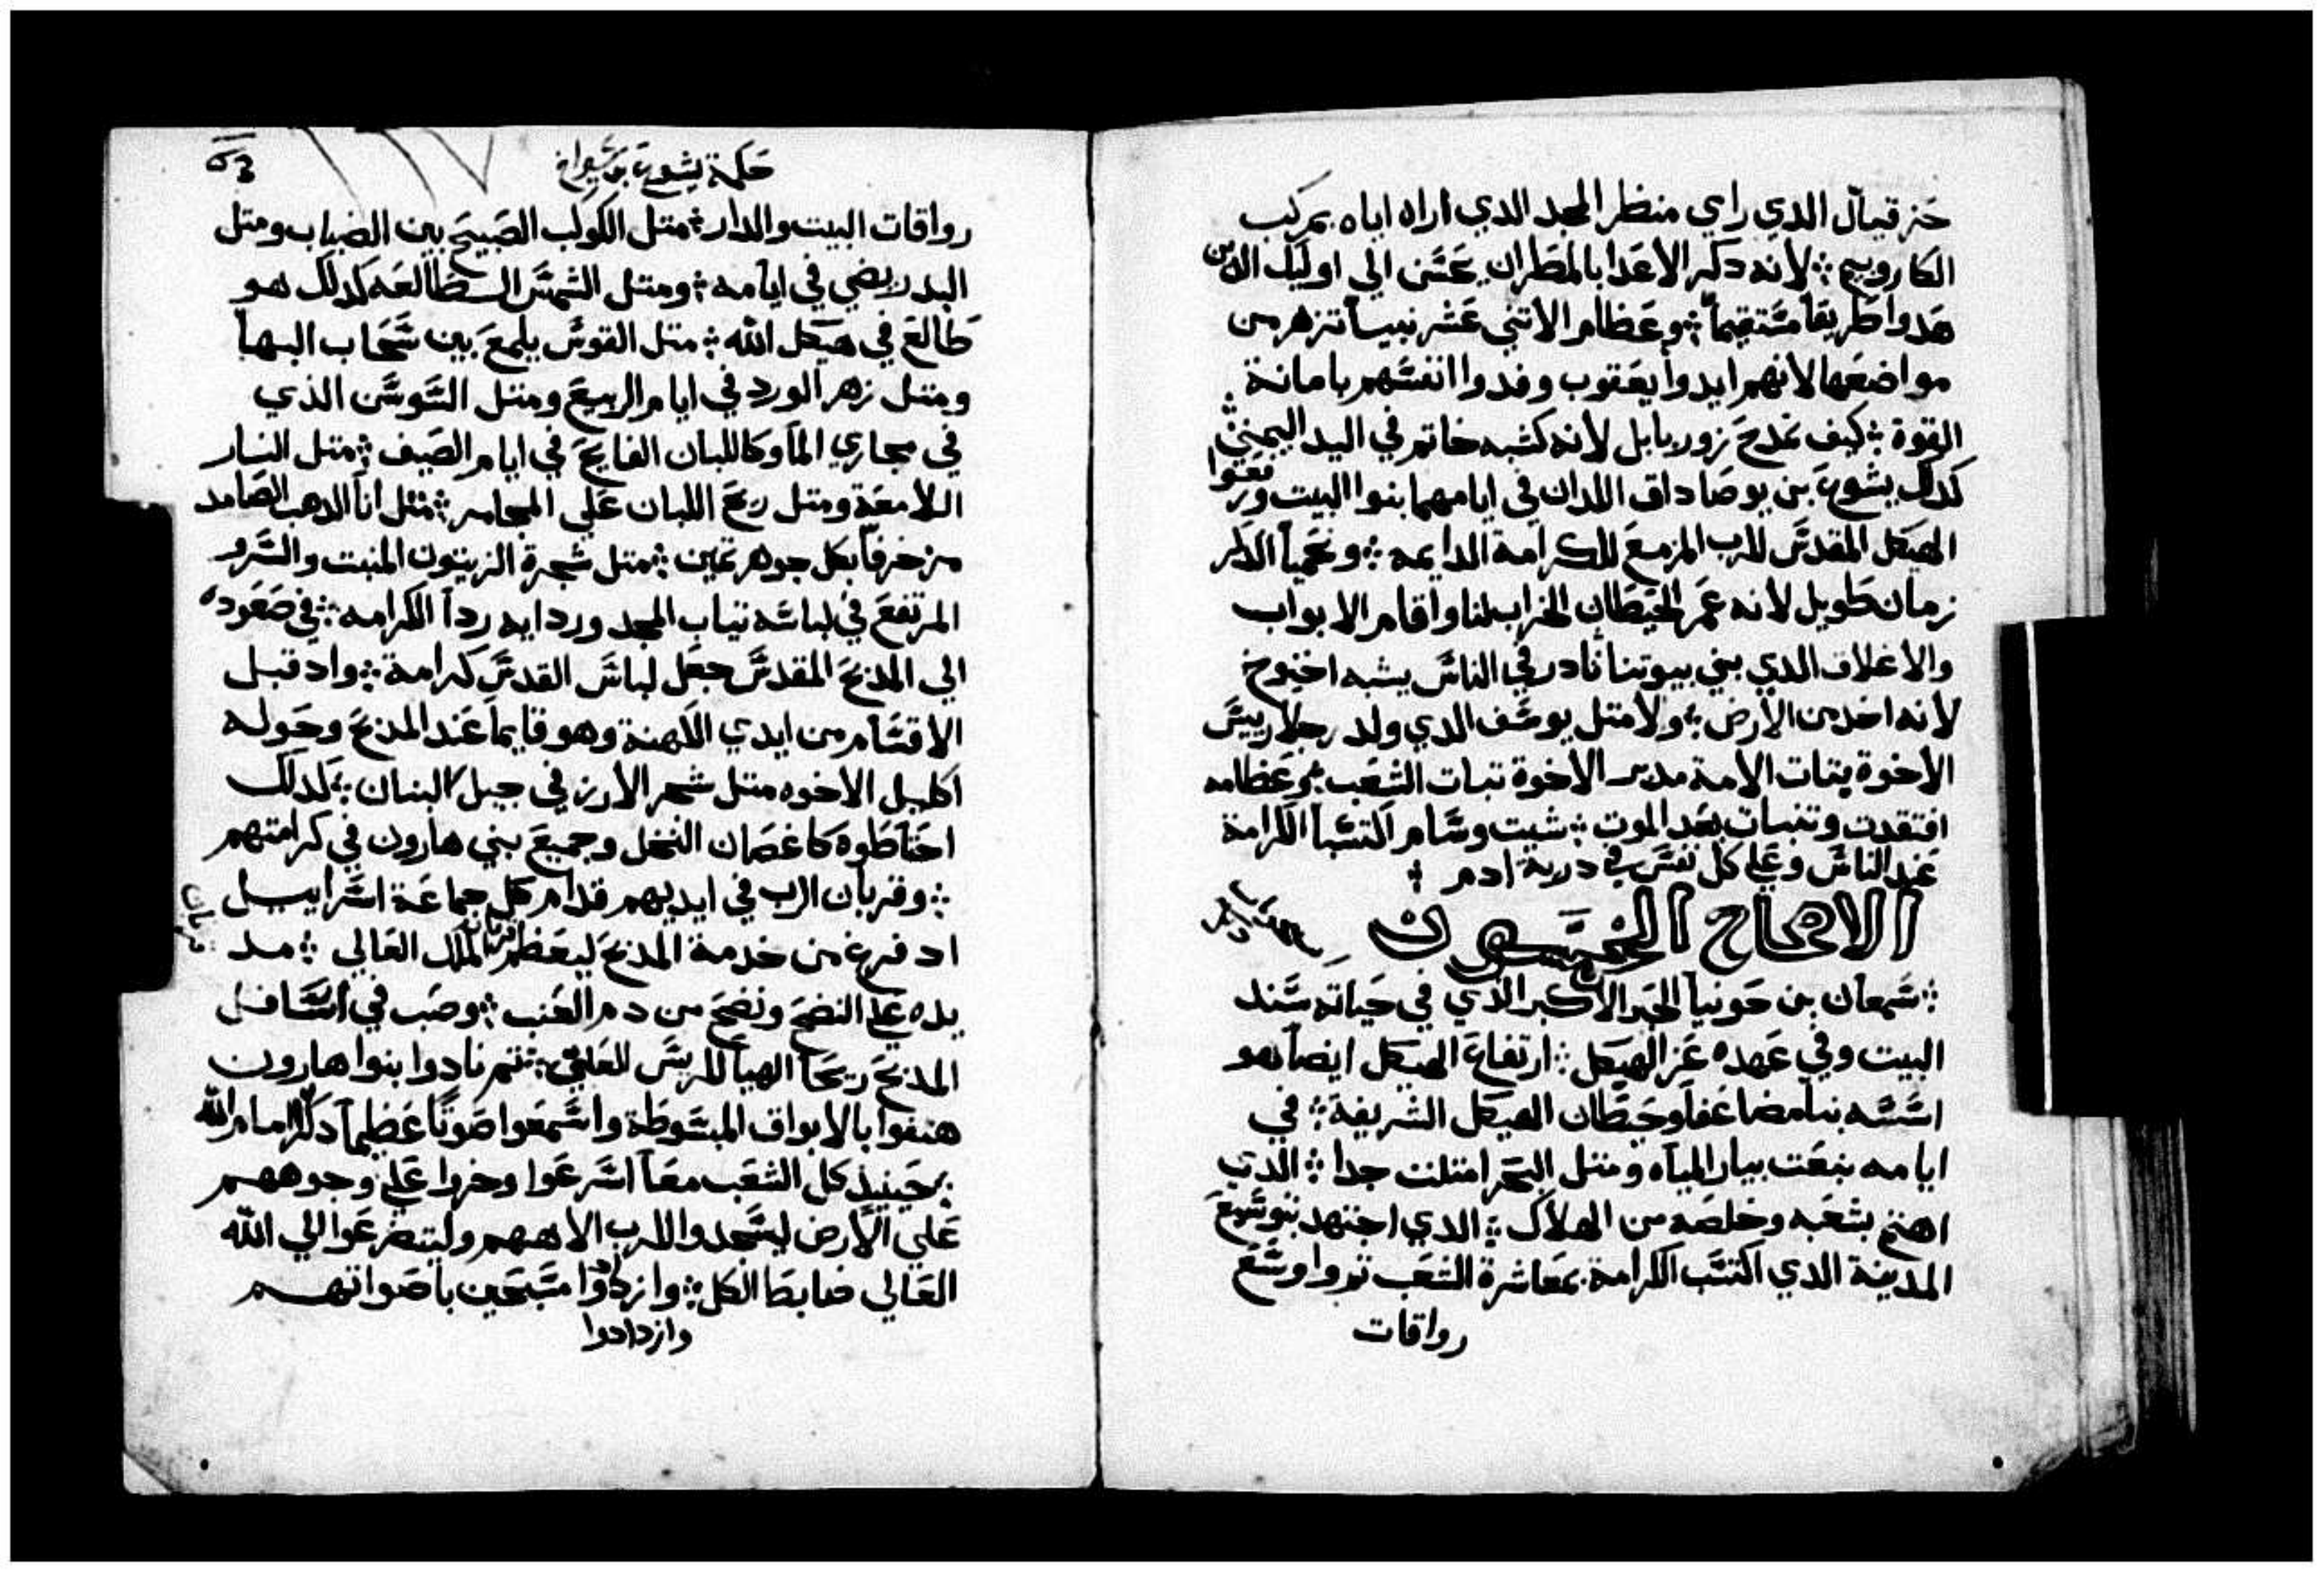 حزقيال الدي راي منظر المجد الدي اراه اياه بمركب
الكاروبيم ܀ لانه دكر الاعدا بالمطر ان يحسن الي اوليك الدين
هدوا طريقاً مستقيماً ܀ وعظام الاتني عشر نبيساً تزهر من
مواضعها لانهم ايدوا يعقوب وفدوا انفسهم بامانة
القوة ܀ كيف نمدح زوربابل لانه كشبه خاتم في اليد اليمني
كدلك يشوع بن يوصاداق اللدان في ايامهما بنوا البيت ورفعوا
الهيكل المقدس للرب المزمع للكرامة الدايمه ܀ ونحميا الدكر
زمان طويل لانه عمر الحيطان الخراب لنا واقام الابواب
والاغلاق الدي بني بيوتنا نادر في الناس يشبه اخنوخ
لانه اخد من الارض ܀ ولا متل يوسف الدي ولد رجلا رييس
الاخوة يتبات الامة مدبر الاخوة تبات الشعب ܀ وعظامه
افتقدت وتنبات بعد الموت ܀ شيت وسام اكتسبا الكرامة
عند الناس وعلي كل نفس في درية ادم ܀
الاصحاح الخمسون
܀ سمعان بن حونيا الحبر الاكبر الذي في حياته سند
البيت وفي عهده عز الهيكل ܀ ارتفاع الهيكل ايضاً هو
اسسه بنا مضاعفاً وحيطان الهيكل الشريفة ܀ في
ايامه نبعت بيار المياه ومتل البحر امتلت جدا ܀ الدي
اهتم بشعبه وخلصه من الهلاك ܀ الدي اجتهد بتوسيع
المدينة الدي اكتسب الكرامة بمعاشرة الشعب تم واوسع
رواقات
حكمة يشوع بن شيراخ
رواقات البيت والدار ܀ متل الكوكب الصبيح بين الضباب ومتل
البدر يضي في ايامه ܀ ومتل الشمس الساطعه كدلك هو
طالع في هيكل الله ܀ متل القوس يلمع بين سحاب البها
ومتل زهر الورد في ايام الربيع ومتل السوسن الذي
في مجاري الما وكاللبان الفايح في ايام الصيف ܀ متل النار
اللامعة ومتل ريح اللبان علي المجامر ܀ متل انا الدهب الصامد
مزخرفاً بكل جوهر تمين ܀ متل شجرة الزيتون المنبت والسرو
المرتفع في لباسه تياب المجد وردايه ردا الكرامه ܀ في صعوده
الي المدبح المقدس جعل لباس القدس كرامة ܀ واد قبل
الاقسام من ايدي الكهنة وهو قايماً عند المدبح وحوله
اكليل الاخوه متل شجر الارز في جبل لبنان ܀ كدلك
احتاطوه كاغصان النخل وجميع بني هارون في كرامتهم
܀ وقربان الرب في ايديهم قدام كل جماعة اسراييل
اد فرغ من خدمة المدبح ليعظم قربان الملك العالي ܀ مد
يده علي النضح ونضح من دم العنب ܀ وصب في اسافل
المدبح ريحاً الهياً للريس العلي ܀ تم نادوا بنوا هارون
هتفوا بالابواق المبسوطة واسمعوا صوتاً عظيماً دكراً امام الله
܀ حينيذ كل الشعب معاً اسرعوا وخروا علي وجوههم
علي الارض ليسجدوا للرب الاههم وليتضرعوا الي الله
العالي ضابط الكل ܀ وازدادوا مسبحين باصواتهم
وازدادوا